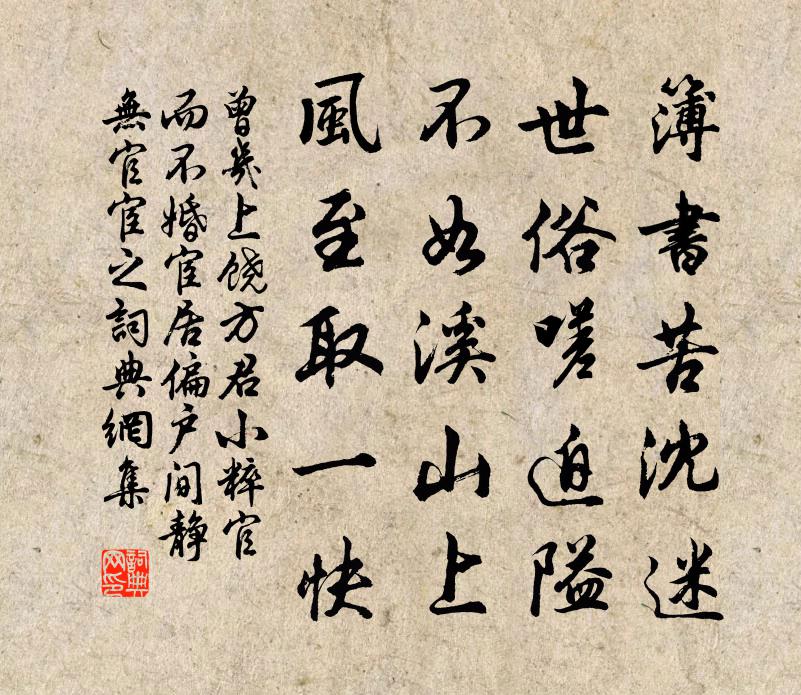 簿書苦沈迷
世俗嗟迫隘
不如溪山上
風至取一快
曾幾上饒方君小粹官
而不婚宦居偏户间靜
無官宦之詞典網集
詞典网印